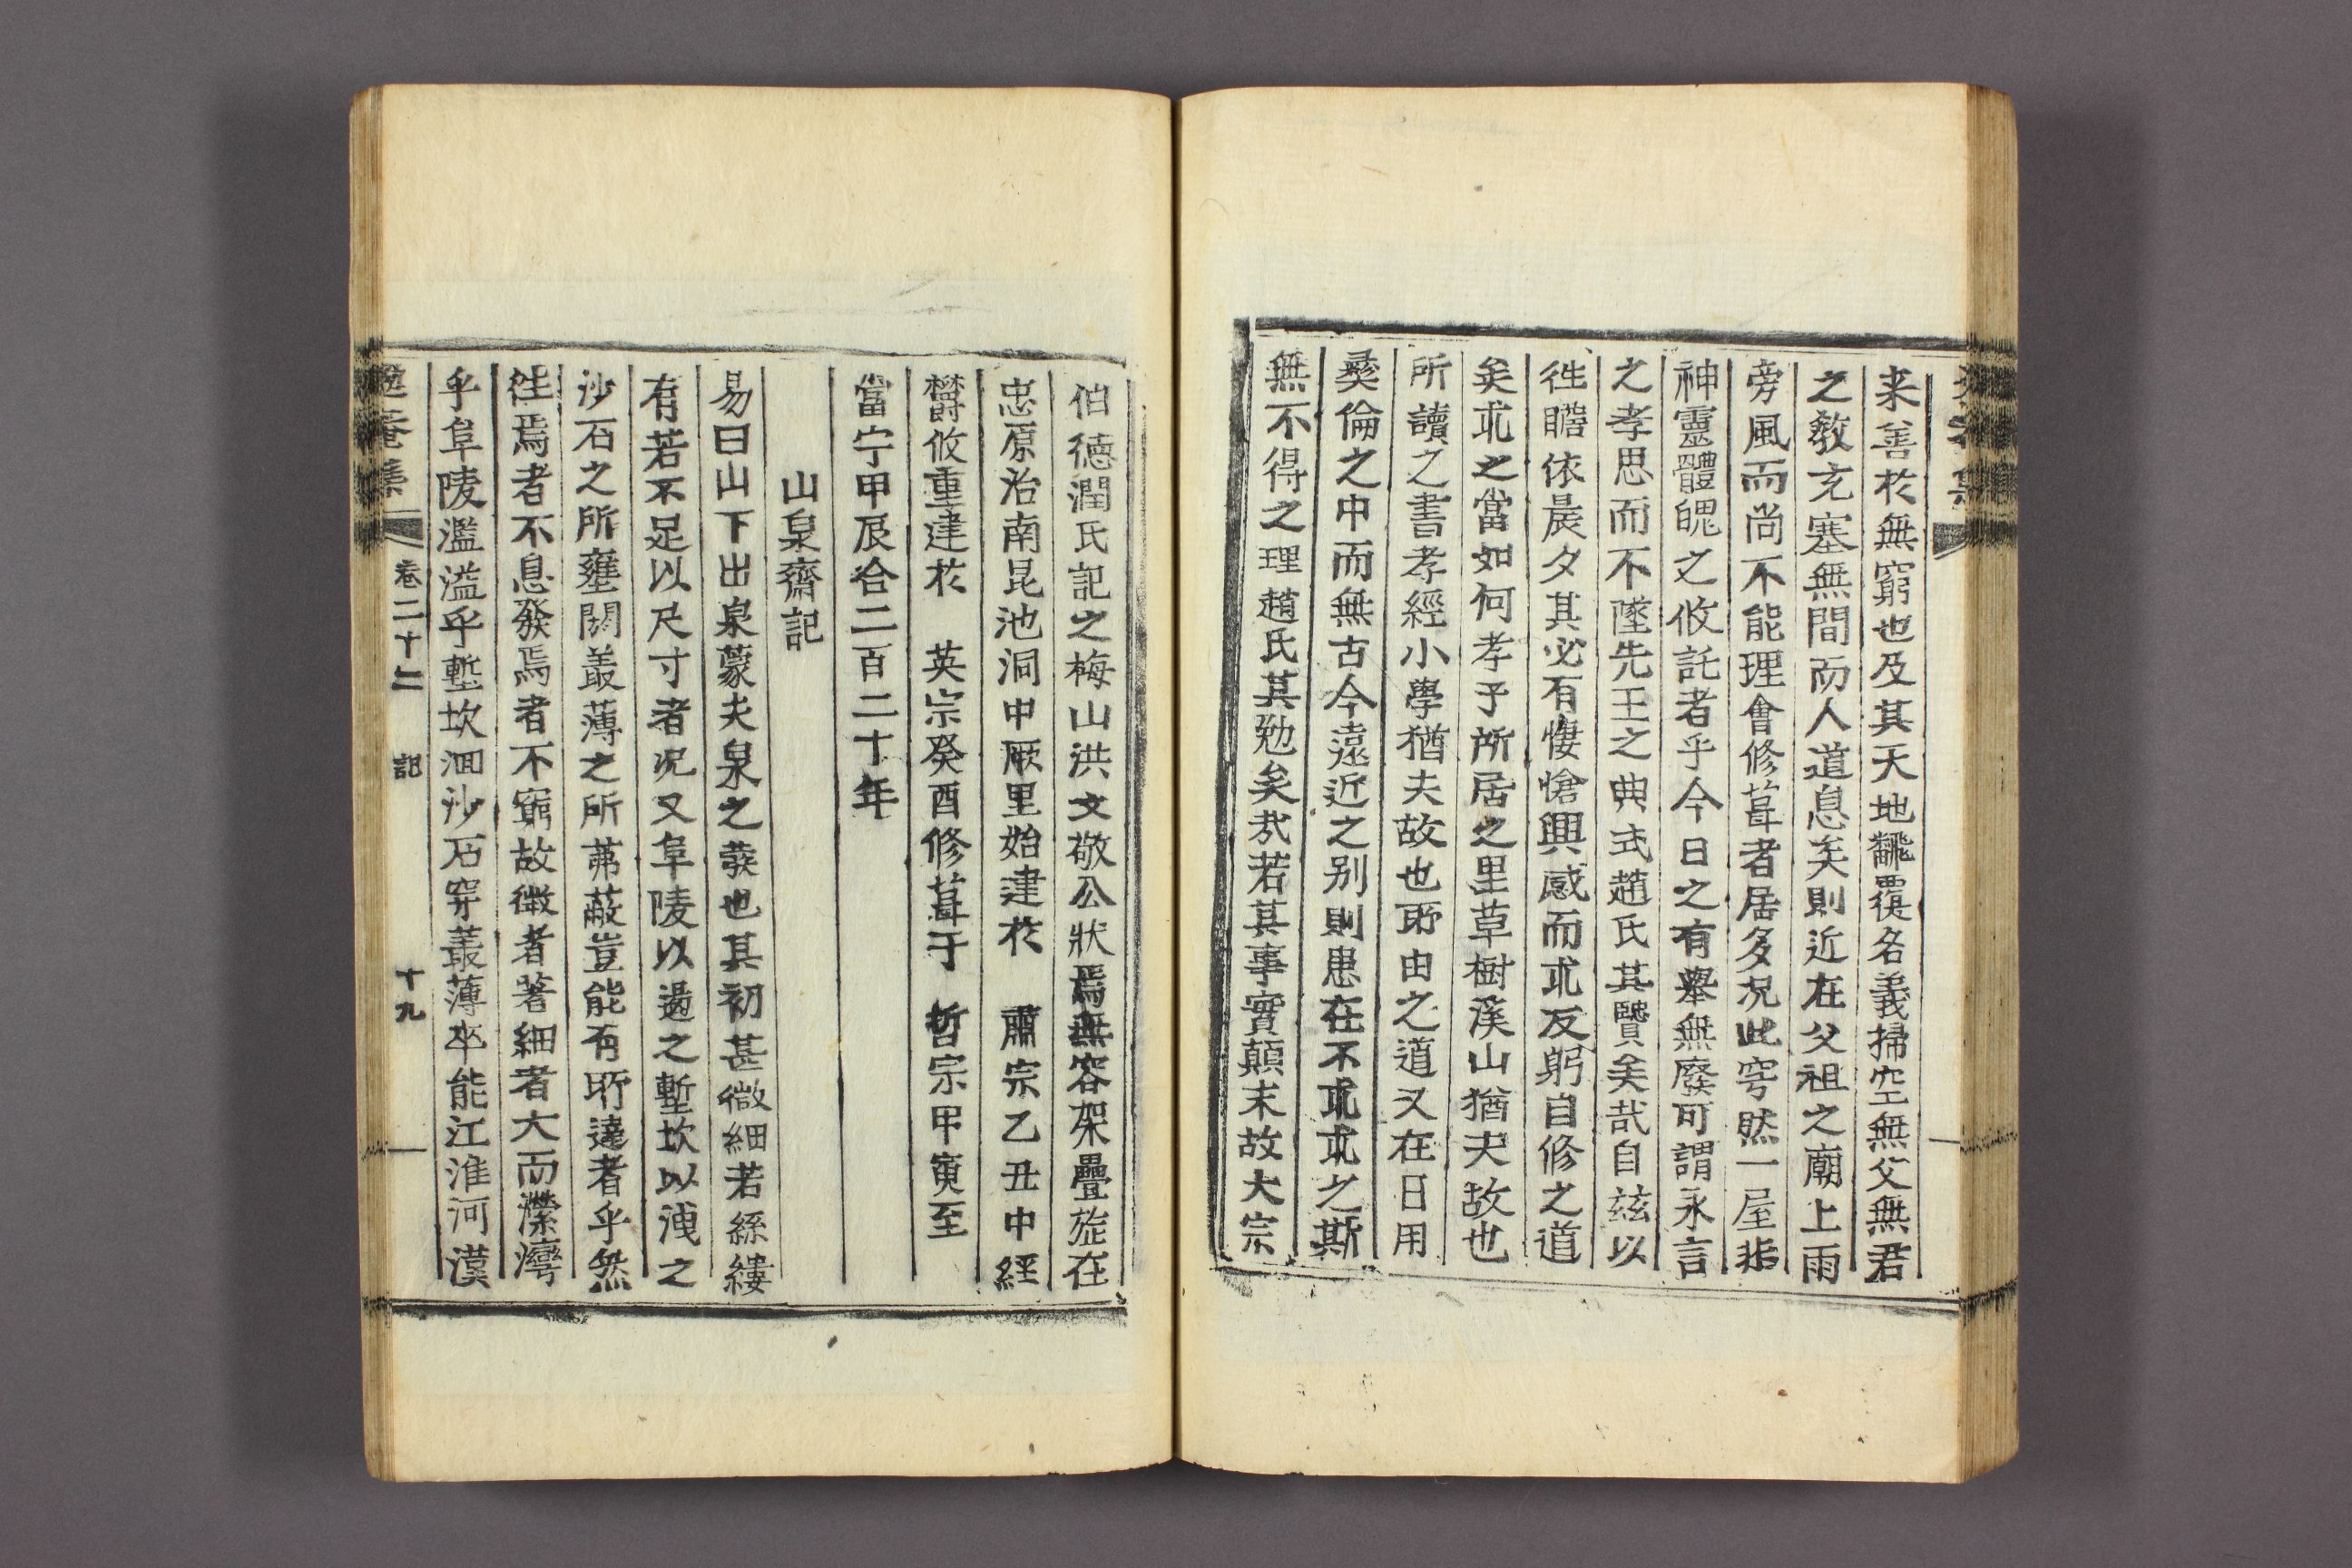 来善於無窮也及其天地飜覆名義掃空無父無君
之敎充塞無間而人道息矣則近在父祖之廟上雨
旁風而尚不能理會修葺者居多况此穹然一屋非
神靈體魄之攸託者乎今日之有舉無廢可謂永言
之孝思而不墜先王之典式趙氏其賢矣哉自玆以
徃瞻依晨夕其必有悽愴興感而求反躬自修之道
矣求之當如何孝子所居之里草樹溪山猶夫故也
所讀之書孝經小學猶夫故也所由之道又在日用
彛倫之中而無古今遠近之别則患在不求求之斯
無不得之理趙氏其勉矣哉若其事實顛末故大宗
伯德潤氏記之梅山洪文敬公狀焉無容架疊旋在
忠原治南昆池洞中厥里始建於 肅宗乙丑中經
欝攸重建於 英宗癸酉修葺于 哲宗甲寅至
當宁甲辰合二百二十年
山泉齋記
易曰山下出泉蒙夫泉之蒙也其初甚微細若絲縷
有若不足以尺寸者况又阜陵以遏之塹坎以洩之
沙石之所壅閼叢薄之所茀蔽豈能有所達者乎然
徃焉者不息發焉者不窮故微者著細者大而瀠灣
乎阜陵濫溢乎塹坎洄沙石穿叢薄卒能江淮河漢
卷二十二 記 十九